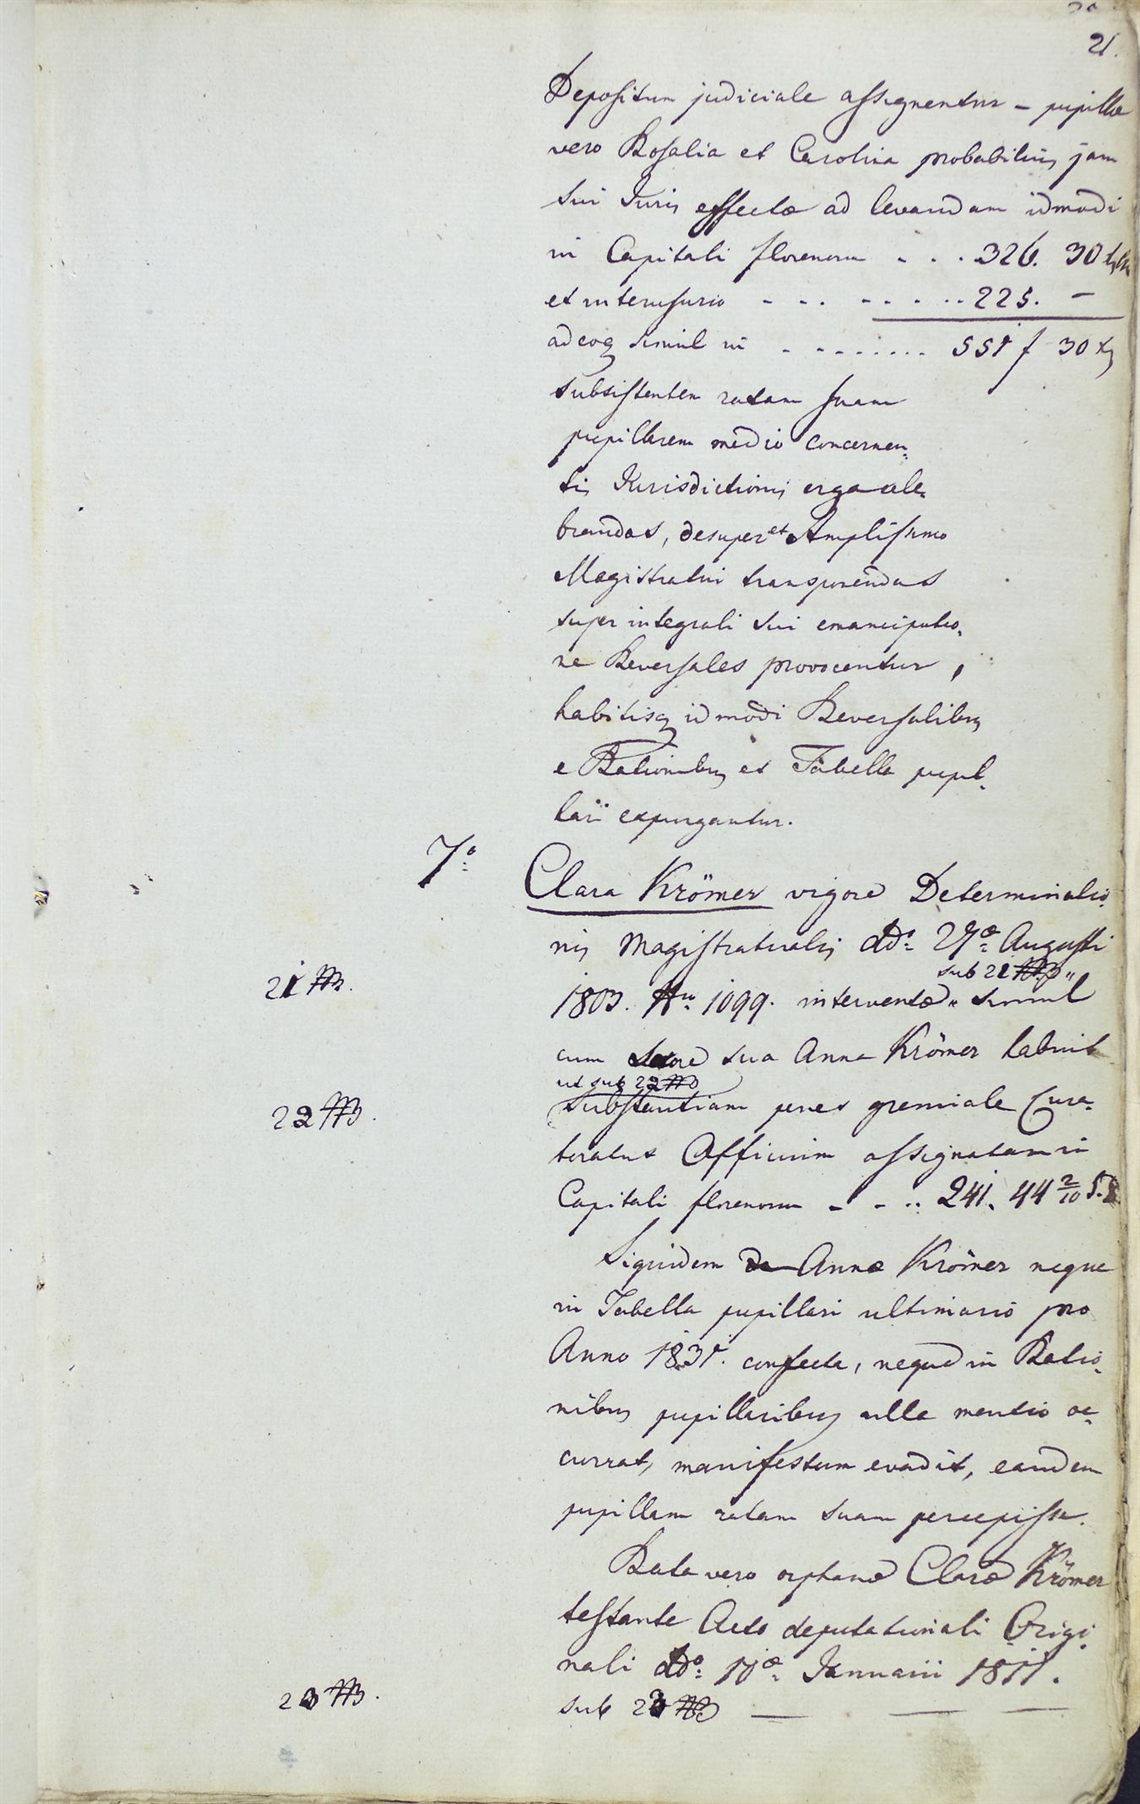 21.
Depositum judiciale assignentur – pupillae
vero Rosalia et Carolina probabilius jam
sui Juris effectae ad levandam idmodi
in Capitali florenorum - - . 326. 30
et interusurio - - - - - - .. 225. –
adeoq simul in - - - - . . . . 551 f 30 x
subsistentem ratam suam
pupillarem medio concernen-
tis Jurisdictionis erga cele-
brandas, desuper et Amplissimo
Magistratui transponendas
super integrali sui emancipatio-
ne Reversales provocentur,
habitisq idmodi Reversalibus
e Rationibus et Tabella pupil-
lari expurgantur.
7o Clara Krömer vigore Determinatio-
nis Magistratualis ddo 27ae Augusti
sub 21 ''
21
1803. Nro 1099. interventae '' simul
cum Sorore sua Anna Krömer habuit
ut sub 22
22
substantiam penes gremiale Cura-
toratus Officium assignatam in
Capitali florenorum - - .. 241. 44 2/10
Siquidem Annae Krömer neque
in Tabella pupillari ultimario pro
Anno 1831. confecta, neque in Ratio-
nibus pupillaribus ulla mentio oc-
currat, manifestum evadit, eandem
pupillam ratam suam percepisse.
Rata vero orphanae Clarae Krömer
testante Acto deputationali Origi-
nali ddo 17ae Januarii 1811.
23
sub 23 — — —